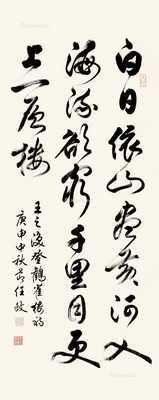 白日依山尽黄河入
海流欲穷千里目更
上一层楼
王之涣登鹳雀楼诗
庚申中秋节任政